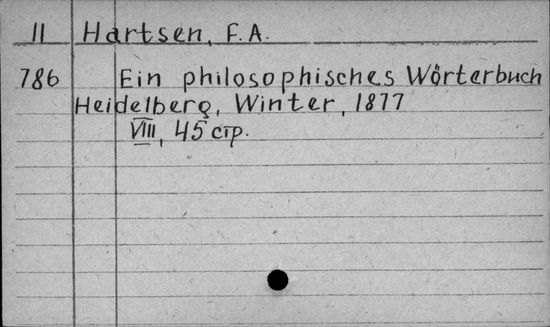 II Hartsen, F.A.
786 Ein philosophisches Wörterbuch
Heidelberg, Winter, 1877
VIII, 45 стр.